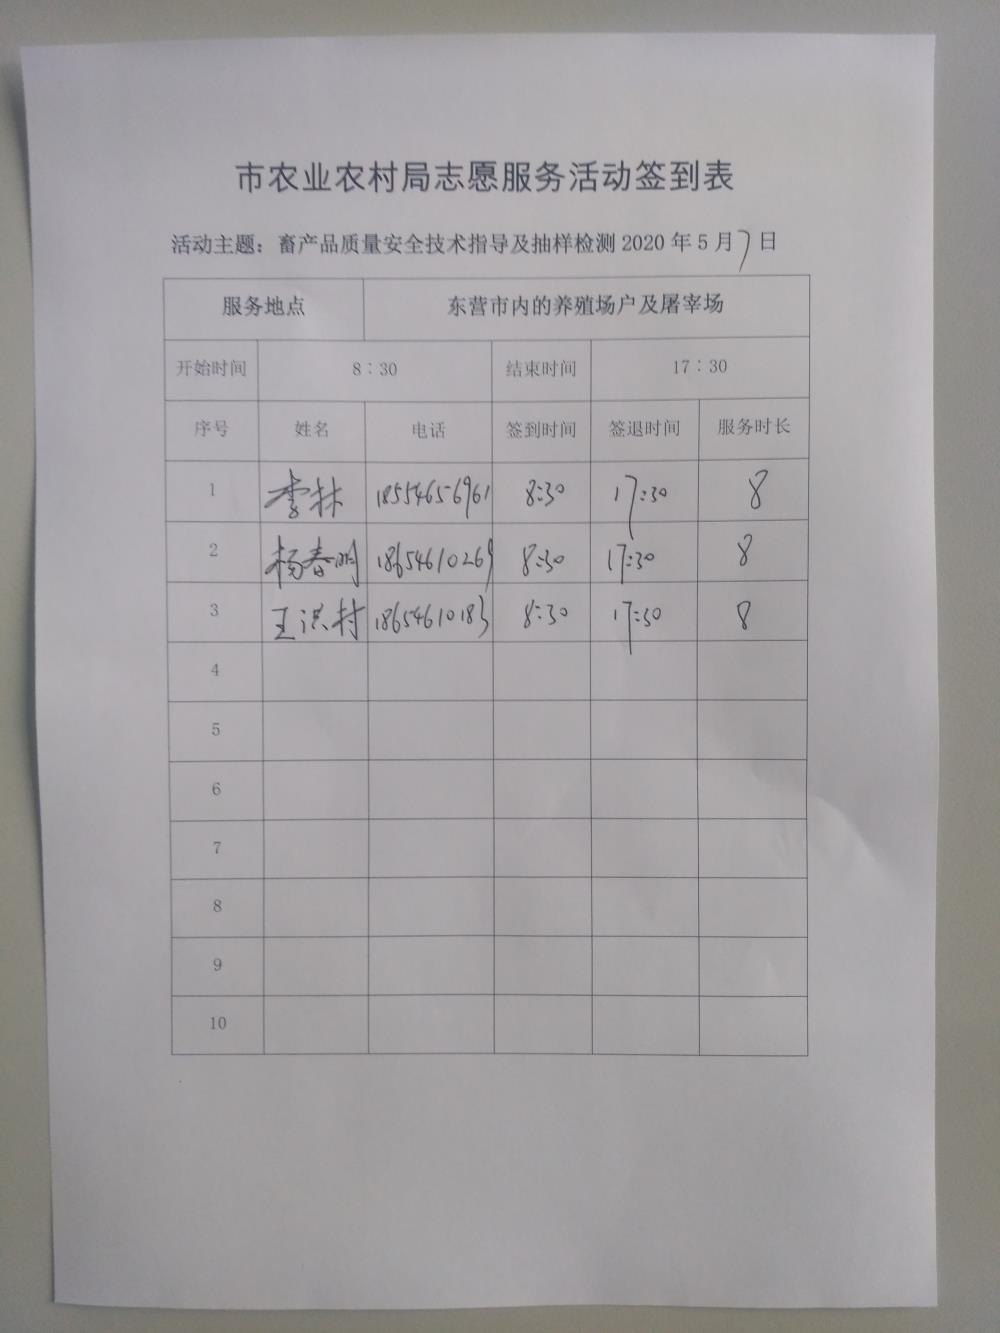 市农业农村局志愿服务活动签到表
活动主题：畜产品质量安全技术指导及抽样检测 2020 年 5 月 7 日
服务地点 东营市内的养殖场户及屠宰场
开始时间 8：30 结束时间 17：30
序号 姓名 电话 签到时间 签退时间 服务时长
1 李林 18554656961 8:30 17:30 8
2 杨春明 18654610269 8:30 17:30 8
3 王洪村 18654610183 8:30 17:30 8
4
5
6
7
8
9
10